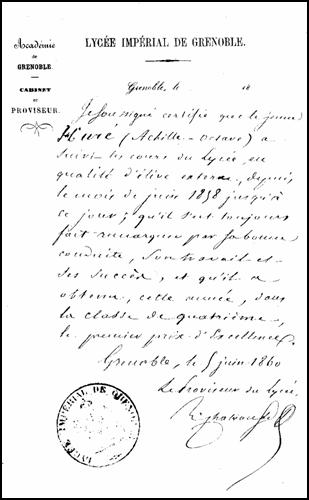 Académie
DE
GRENOBLE.
CABINET
DU
PROVISEUR.
LYCÉE IMPÉRIAL DE GRENOBLE.
Grenoble, le 18
Je soussigné certifie que le jeune
Huré (Achille-Octave) a
suivi les cours du Lycée en
qualité d'élève externe, depuis
le mois de juin 1858 jusqu'à
ce jour; qu'il s'est toujours
fait remarquer par sa bonne
conduite, son travail et
ses succès, et qu'il a
obtenu, cette année, dans
la classe de quatrième,
le premier prix d'Excellence.
Grenoble, le 5 juin 1860
Le Proviseur du Lycée,
LYCÉE IMPÉRIAL DE GRENOBLE